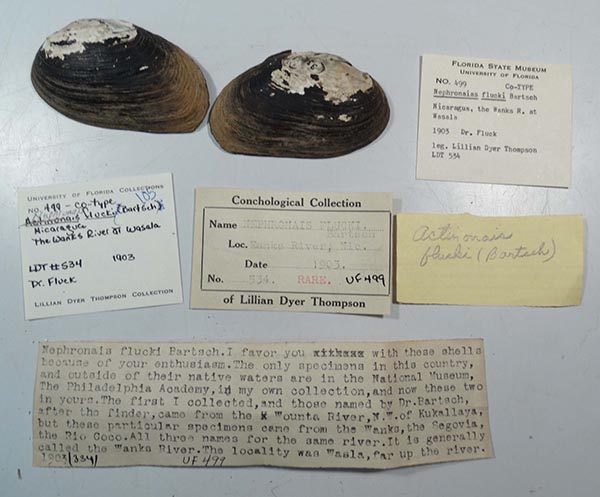 FLORIDA STATE MUSEUM
UNIVERSITY OF FLORIDA
NO. 499 Co-TYPE
Nephronaias flucki Bartsch
Nicaragua, the Wanks R. at
Wasala
1903 Dr. Fluck
leg. Lillian Dyer Thompson
LDT 534
UNIVERSITY OF FLORIDA COLLECTIONS
NO. 499 - co-type
Actinonais flucki (Bartsch)
Nicaragua
The Wanks River at Wasala
LDT #534 1903
Dr. Fluck
LILLIAN DYER THOMPSON COLLECTION
Conchological Collection
Name NEPHRONAIS FLUCKI.
Bartsch
Loc. Wanks River, Nic.
Date 1903.
No. 534. RARE. UF499
of Lillian Dyer Thompson
Actinonais
flucki (Bartsch)
Nephronais flucki Bartsch. I favor you with these shells
because of your enthusiasm. The only specimens in this country,
and outside of their native waters are in the National Museum,
The Philadelphia Academy, in my own collection, and now these two
in yours. The first I collected, and those named by Dr. Bartsch,
after the finder, came from the Wounta River, N.W. of Kukallaya,
but these particular specimens came from the Wanks, the Segovia,
the Rio Coco. All three names for the same river. It is generally
called the Wanks River. The locality was Wasla, far up the river.
1903/534/ UF 499